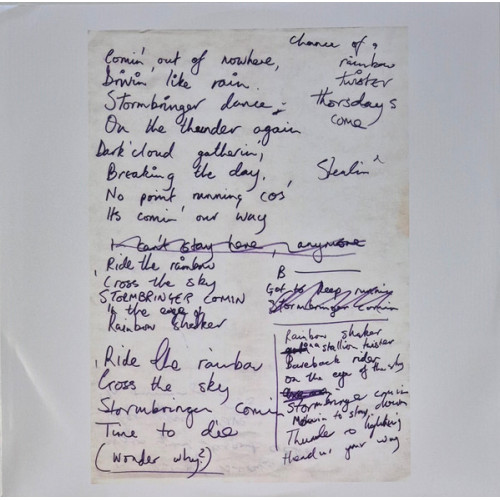 Comin' out of nowhere,
Drivin' like rain.
Stormbringer dance
On the thunder again
Dark cloud gatherin',
Breaking the day,
No point running cos'
Its comin' our way
Chance of a
rainbow
twister
Thorsday's
come
Stealin'
I can't stay here, anymore
Ride the rainbow
Cross the sky
STORMBRINGER COMIN
In the eye of
Rainbow shaker
B
Got to keep running
Stormbringer comin
Ride the rainbow
Cross the sky
Stormbringer comin
Time to die
(wonder why?)
Rainbow shaker
stallion twister
Bareback rider
on the eye of the sky
Stormbringer comin
down
to stay
Thunder & lightning
Headin your way